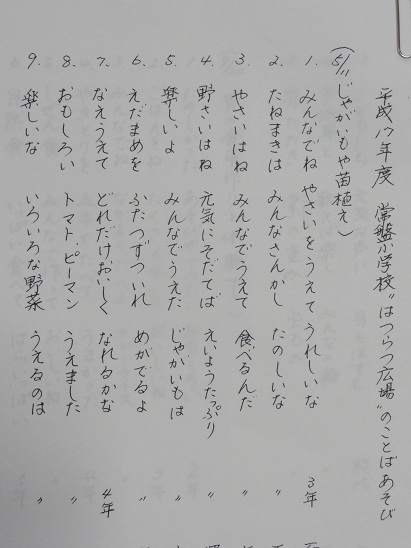 平成17年度 常盤小学校"はつらつ広場"のことばあそび
(5/ じゃがいもや苗植え)
1. みんなでね やさいをうえて うれしいな 3年
2. たねまきは みんなさんかし たのしいな 〃
3. やさいはね みんなでうえて 食べるんだ 〃
4. 野さいはね 元気にそだてば えいようたっぷり 〃
5. 楽しいよ みんなでうえた じゃがいもは 〃
6. えだまめを ふたつずついれ めがでるよ 〃
7. なえうえて どれだけおいしく なれるかな 4年
8. おもしろい トマト、ピーマン うえました 〃
9. 楽しいな いろいろな野菜 うえるのは 〃